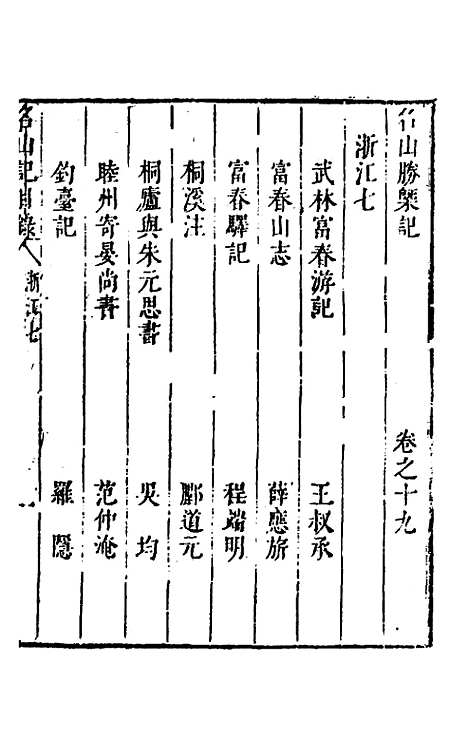 名山勝槩記 卷之十九
浙江七
武林富春游記 王叔承
富春山志 薛應旂
富春驛記 程端明
桐溪注 酈道元
桐廬與朱元思書 吳均
睦州寄晏尚書 范仲淹
釣臺記 羅隱
名山記目錄 浙江七 一